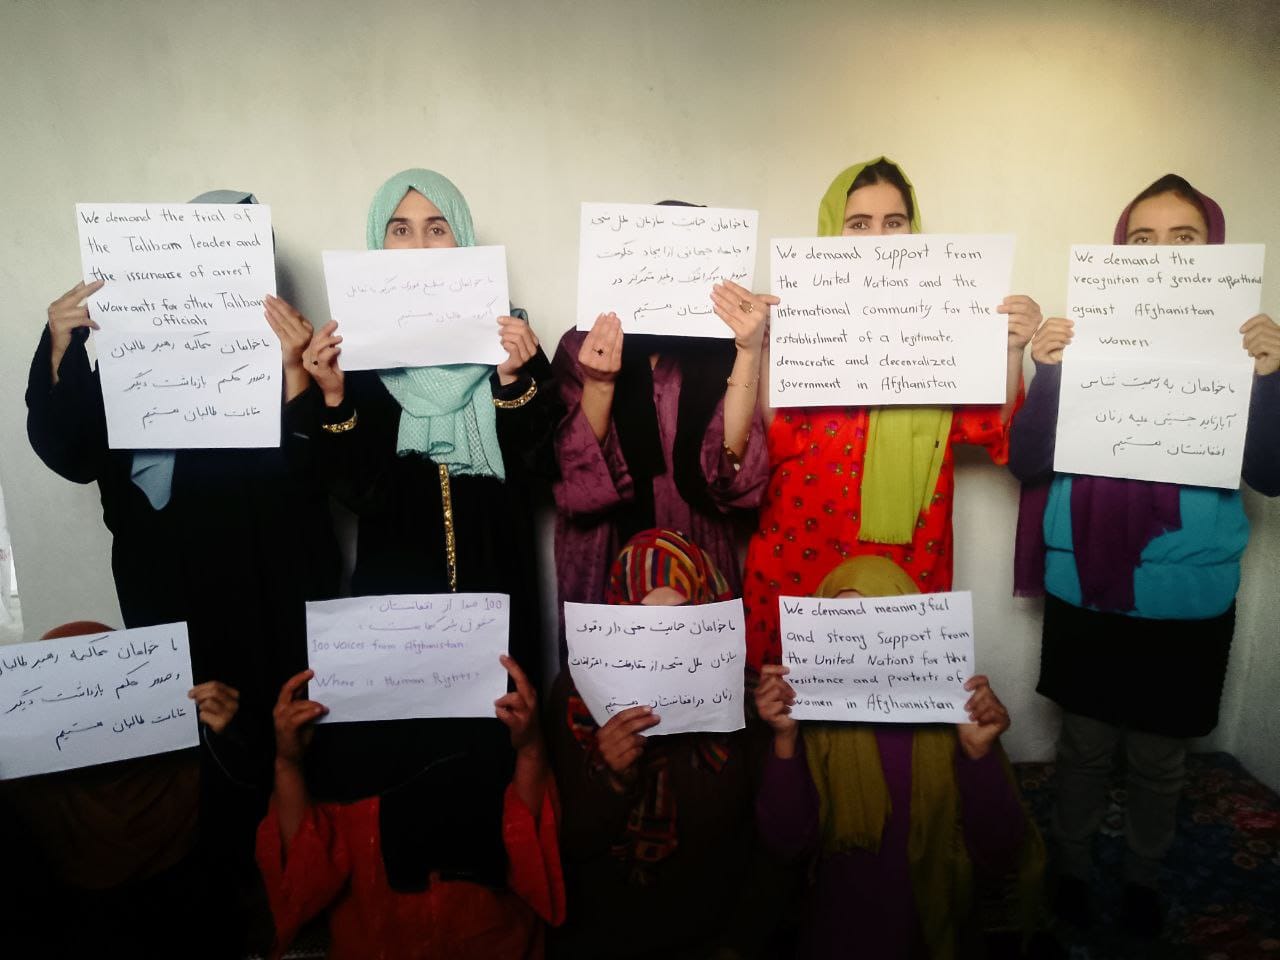 We demand the trial of
the Talibam leader and
the issunarse of arrest
Warrants for other Taliban
Officials
ما خواهان محاکمه رهبر طالبان
و صدور حکم بازداشت دیگر
مقامات طالبان هستیم
ما خواهان قطع فوری هرگونه تعامل
با گروه طالبان هستیم
ما خواهان حمایت سازمان ملل متحد
و جامعه جهانی از ایجاد حکومت
مشروع دموکراتیک و غیر متمرکز در
افغانستان هستیم
We demand Support from
the United Nations and the
international community for the
establishment of a legitimate,
democratic and decenralized
government in Afghanistan
We demand the
recognition of gender apartheid
against Afghanistan
women.
ما خواهان به رسمیت شناسی
آپارتاید جنسیتی علیه زنان
افغانستان هستیم
ما خواهان محاکمه رهبر طالبان
و صدور حکم بازداشت دیگر
مقامات طالبان هستیم
100 صدا از افغانستان،
حقوق بشر کجاست؟
100 voices from Afghanistan:
Where is Human Rights?
ما خواهان حمایت معنی دار و قوی
سازمان ملل متحد از مقاومت و اعتراضات
زنان در افغانستان هستیم
We demand meaningful
and strong Support from
the United Nations for the
resistance and protests of
women in Afghannistan